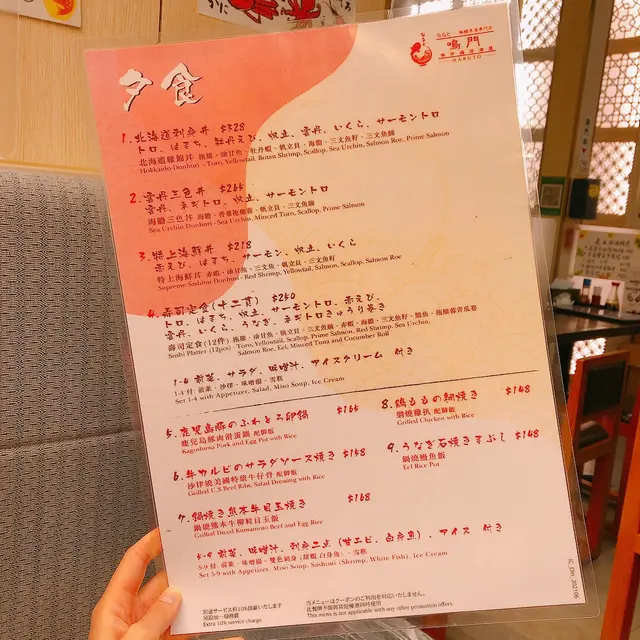 夕食
なると・海鮮居酒屋専門店
鳴門
NARUTO
1. 北海道刺身丼 $328
トロ、はまち、牡丹えび、帆立、雲丹、いくら、サーモントロ
北海道雜錦丼 拖羅、油甘魚、牡丹蝦、帆立貝、海膽、三文魚籽、三文魚腩
Hokkaido Donburi - Toro, Yellowtail, Botan Shrimp, Scallop, Sea Urchin, Salmon Roe, Prime Salmon
2. 雲丹三色丼 $265
雲丹、ネギトロ、帆立、サーモントロ
海膽三色丼 海膽、香蔥拖羅蓉、帆立貝、三文魚腩
Sea Urchin Donburi - Sea Urchin, Minced Toro, Scallop, Prime Salmon
3. 特上海鮮丼 $218
赤えび、はまち、サーモン、帆立、いくら
特上海鮮丼 赤蝦、油甘魚、三文魚、帆立貝、三文魚籽
Supreme Sashimi Donburi - Red Shrimp, Yellowtail, Salmon, Scallop, Salmon Roe
4. 寿司定食(十二貫) $260
トロ、はまち、帆立、サーモントロ、赤えび、
雲丹、いくら、うなぎ、ネギトロきゅうり巻き
壽司定食(12件) 拖羅、油甘魚、帆立貝、三文魚腩、赤蝦、海膽、三文魚籽、鰻魚、拖羅蓉青瓜卷
Sushi Platter (12pcs) - Toro, Yellowtail, Scallop, Prime Salmon, Red Shrimp, Sea Urchin,
Salmon Roe, Eel, Minced Tuna and Cucumber Roll
1-4 前菜、サラダ、味噌汁、アイスクリーム 付き
1-4 付: 前菜、沙律、味噌湯、雪糕
Set 1-4 with Appetizer, Salad, Miso Soup, Ice Cream
5. 鹿児島豚のふわとろ卵鍋 $165
鹿兒島豚肉滑蛋鍋 配御飯
Kagoshima Pork and Egg Pot with Rice
6. 牛カルビのサラダソース焼き $158
沙律燒美國特級牛仔骨 配御飯
Grilled U.S Beef Ribs, Salad Dressing with Rice
7. 鍋焼き熊本牛目玉焼き $168
鍋燒熊本牛柳粒目玉飯
Grilled Diced Kumamoto Beef and Egg Rice
8. 鶏ももの網焼き $148
網燒雞扒 配御飯
Grilled Chicken with Rice
9. うなぎ石焼きまぶし $148
鍋燒鰻魚飯
Eel Rice Pot
5-9 前菜、味噌汁、刺身二点 (甘エビ、白身魚)、アイス 付き
5-9 付: 前菜、味噌湯、雙色刺身 (甜蝦,白身魚)、雪糕
Set 5-9 with Appetizer, Miso Soup, Sashimi (Shrimp, White Fish), Ice Cream
別途サービス料10%頂戴いたします
另設加一服務費
Extra 10% service charge.
当メニューはクーポンのご利用を対応いたしません。
比餐牌不能與其他優惠同時使用
This menu is not applicable with any other promotion offers.